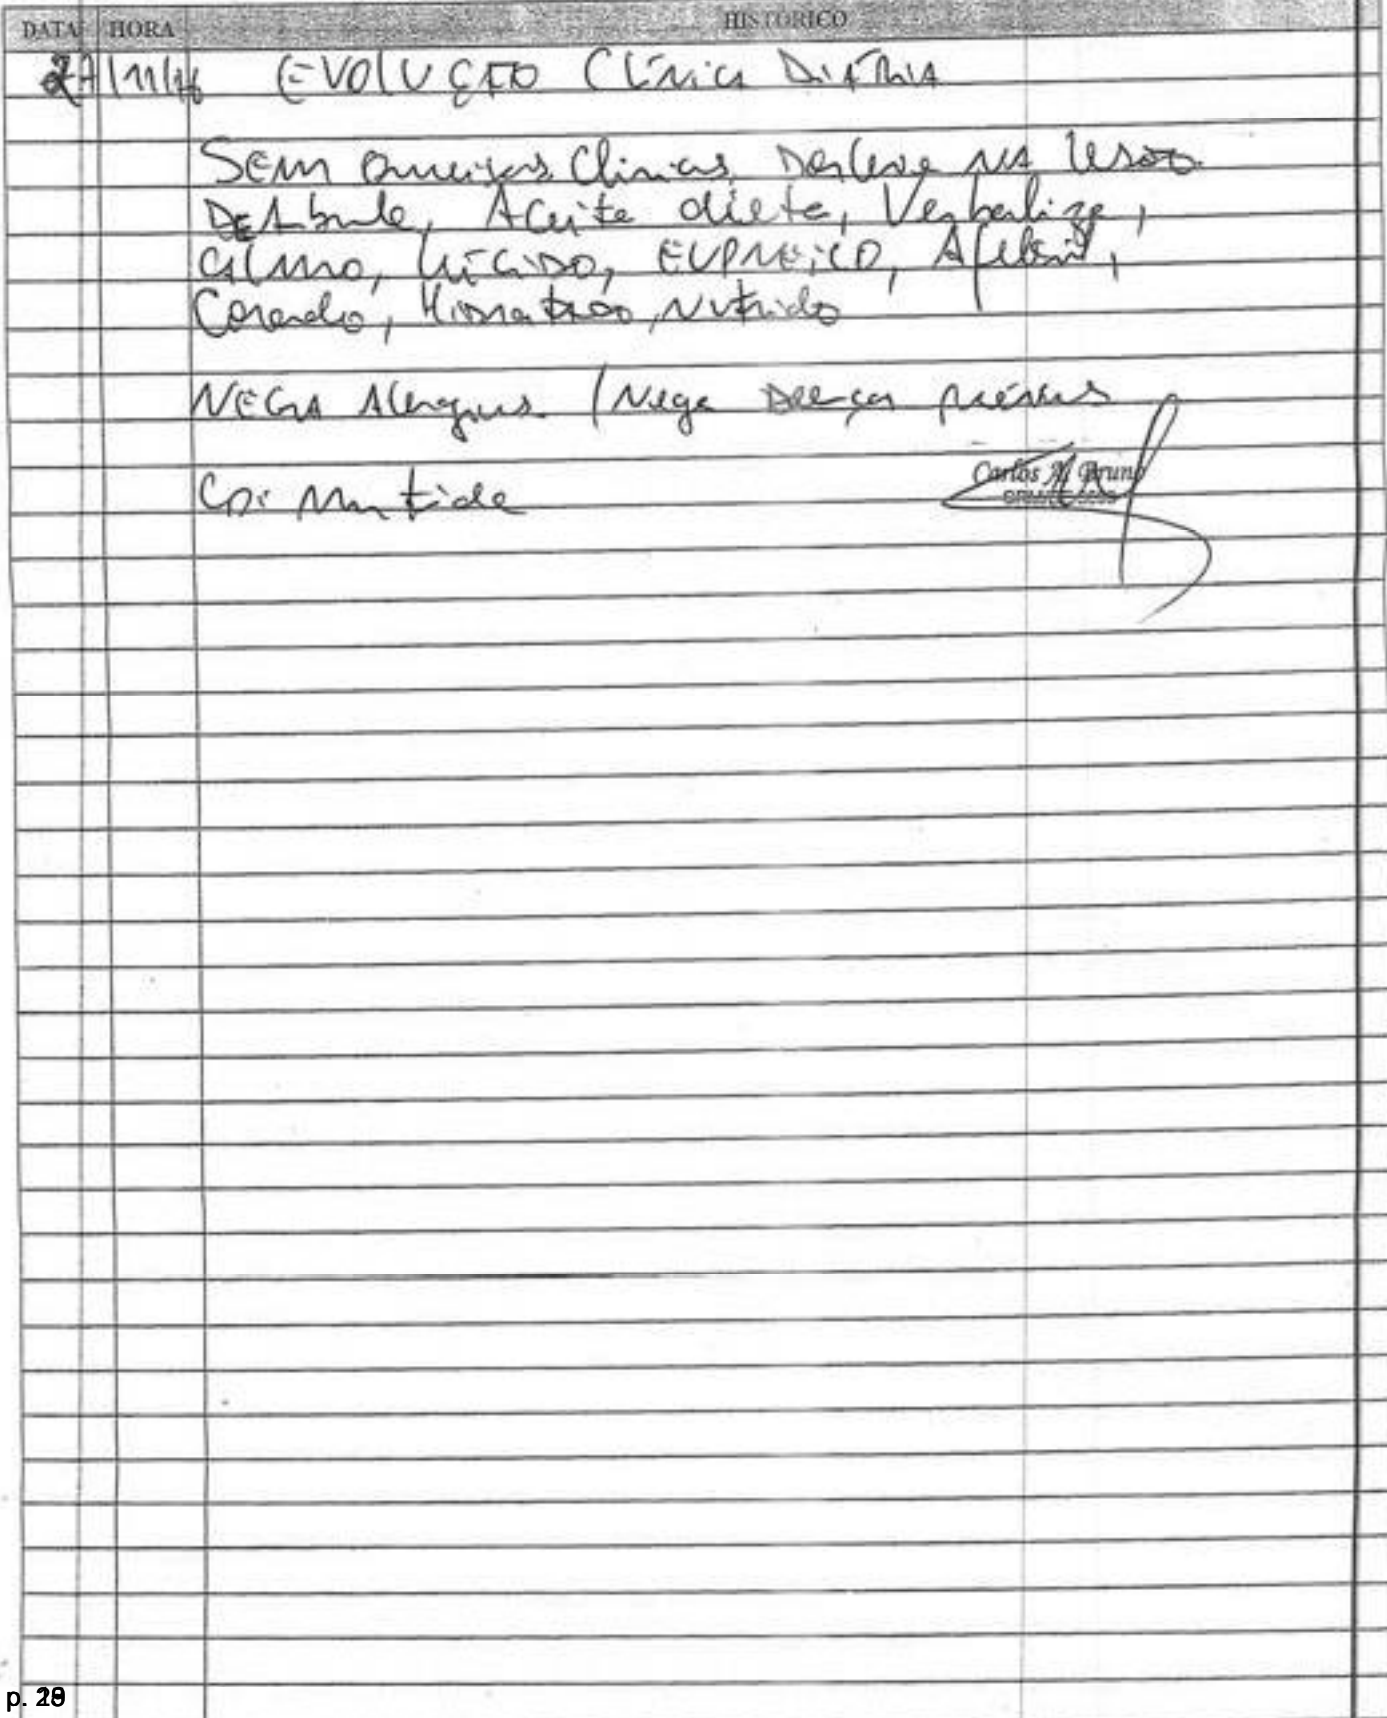 DATA HORA HISTÓRICO
27/11/16 EVOLUÇÃO CLÍNICA DIÁRIA
SEM QUEIXAS Clínicas, Dor leve NA lesão
DEAmbula, Aceita dieta, Verbaliza,
CALMO, LÚCIDO, EUPNEICO, Afebril,
Corado, Hidratado, Nutrido
NEGA Alergias / Nega Doenças prévias
CD: Mantida
Carlos A. Bruno
p.